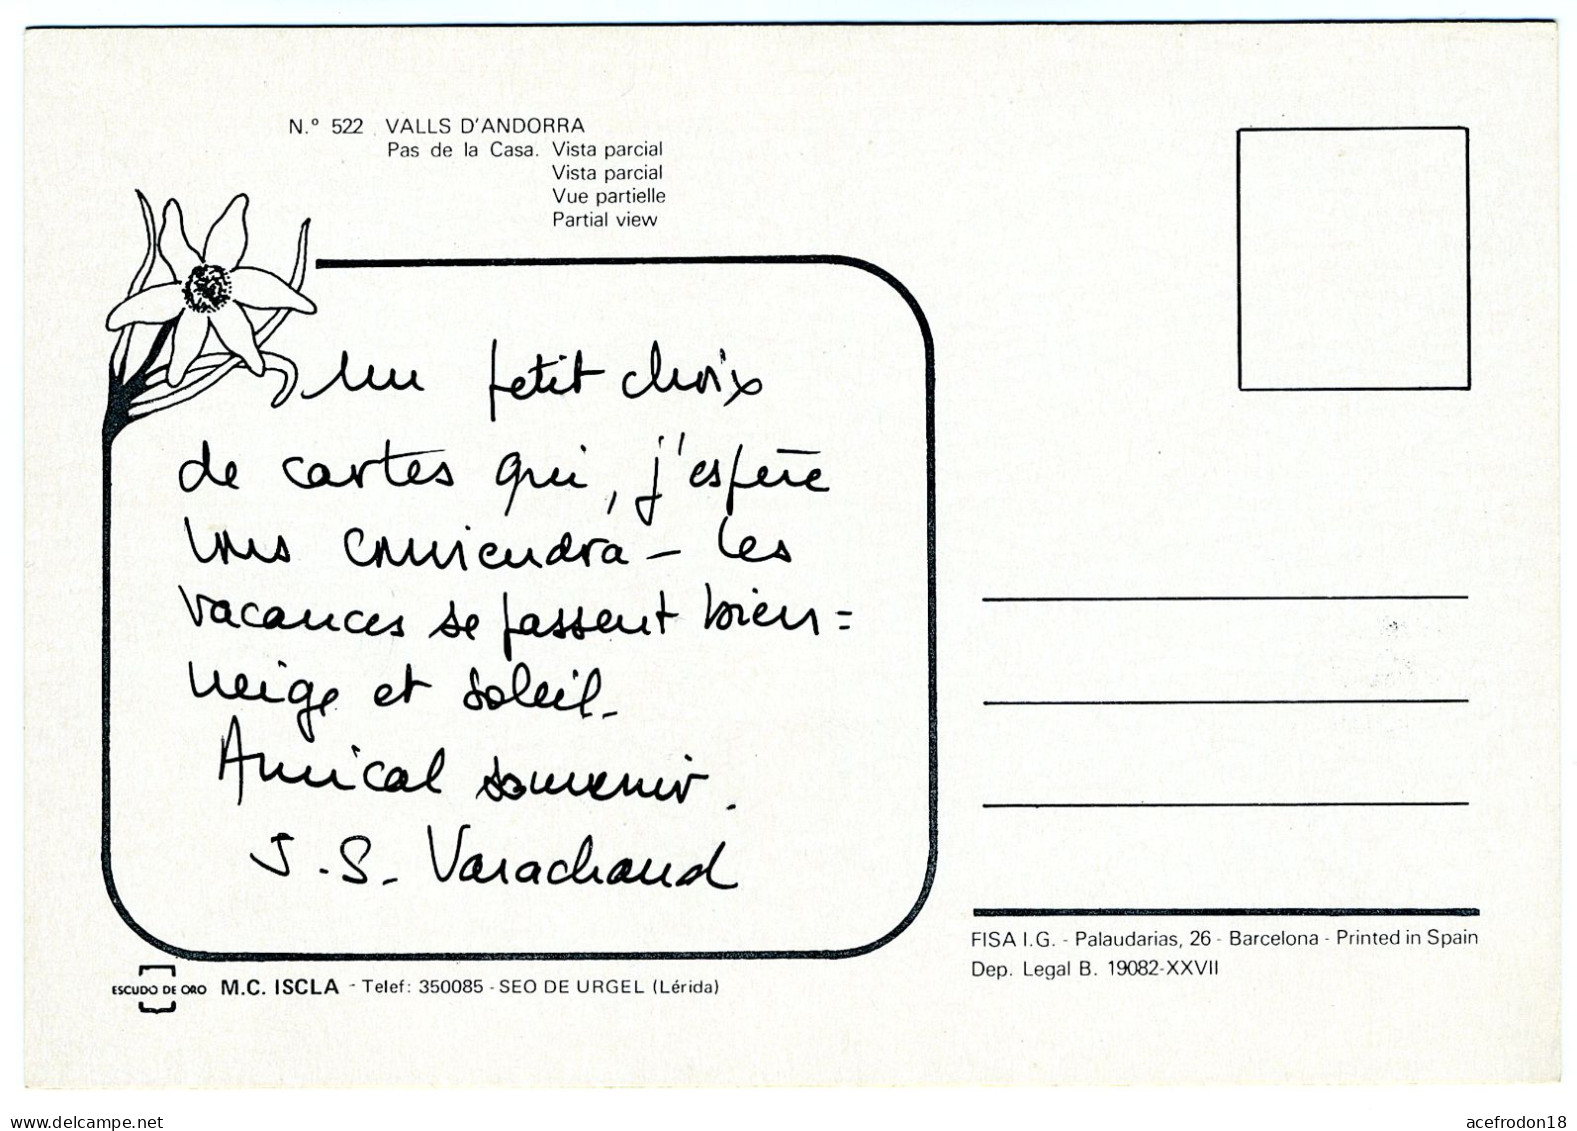 N.º 522 VALLS D'ANDORRA
Pas de la Casa. Vista parcial
Vista parcial
Vue partielle
Partial view
Un petit choix
de cartes qui, j'espère
vous conviendra – Les
vacances se passent bien =
neige et soleil.
Amical souvenir.
J.S. Varachaud
FISA I.G. - Palaudarias, 26 - Barcelona - Printed in Spain
Dep. Legal B. 19082-XXVII
ESCUDO DE ORO M.C. ISCLA - Telef: 350085 - SEO DE URGEL (Lérida)
www.delcampe.net
acefrodon18